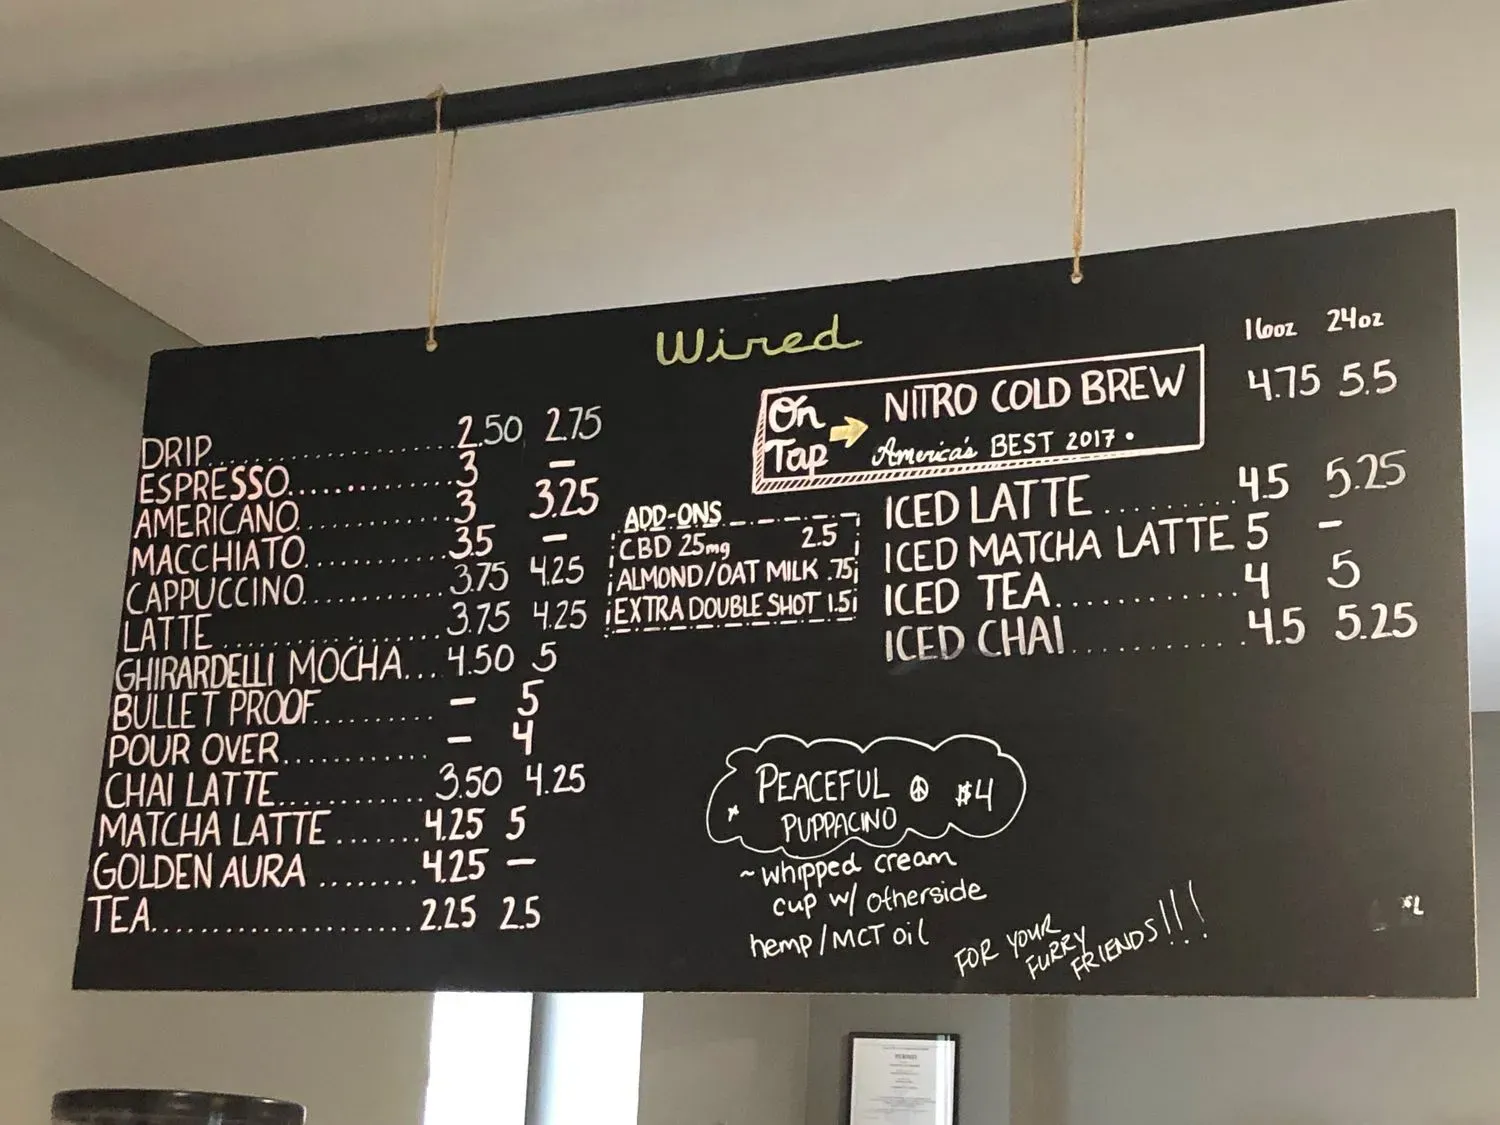 Wired
DRIP..................2.50 2.75
ESPRESSO..................3 –
AMERICANO..................3 3.25
MACCHIATO..................3.5 –
CAPPUCCINO..................3.75 4.25
LATTE..................3.75 4.25
GHIRARDELLI MOCHA...4.50 5
BULLET PROOF..........– 5
POUR OVER............– 4
CHAI LATTE............3.50 4.25
MATCHA LATTE.......4.25 5
GOLDEN AURA........4.25 –
TEA....................2.25 2.5
ADD-ONS
CBD 25mg 2.5
ALMOND/OAT MILK .75
EXTRA DOUBLE SHOT 1.5
16oz 24oz
On Tap → NITRO COLD BREW 4.75 5.5
America's BEST 2017 •
ICED LATTE.........4.5 5.25
ICED MATCHA LATTE 5 –
ICED TEA............4 5
ICED CHAI...........4.5 5.25
PEACEFUL ☮ $4
PUPPACINO
~whipped cream
cup w/ otherside
hemp/MCT oil
FOR YOUR
FURRY
FRIENDS!!!